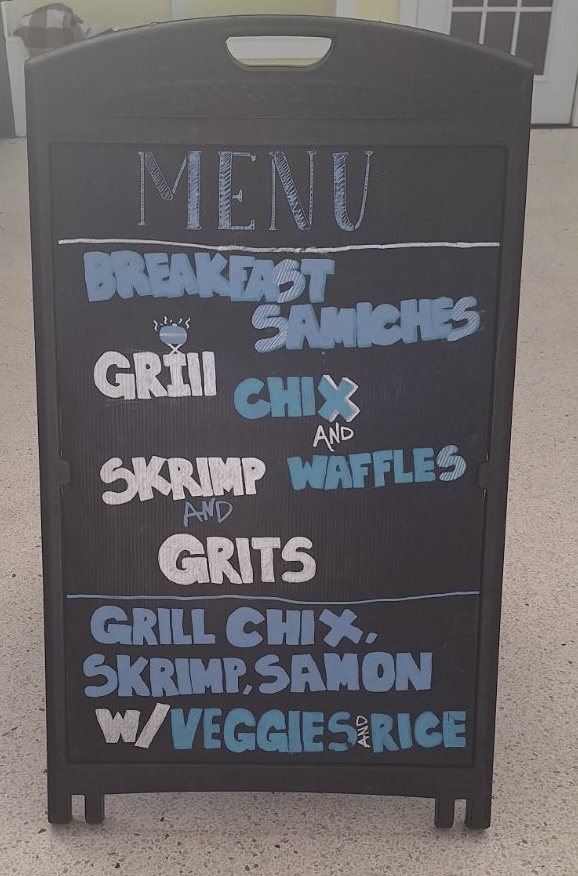 MENU
BREAKFAST
SAMICHES
GRIll
CHIX
AND
WAFFLES
SKRIMP
AND
GRITS
GRILL CHIX,
SKRIMP, SAMON
W/ VEGGIES AND RICE